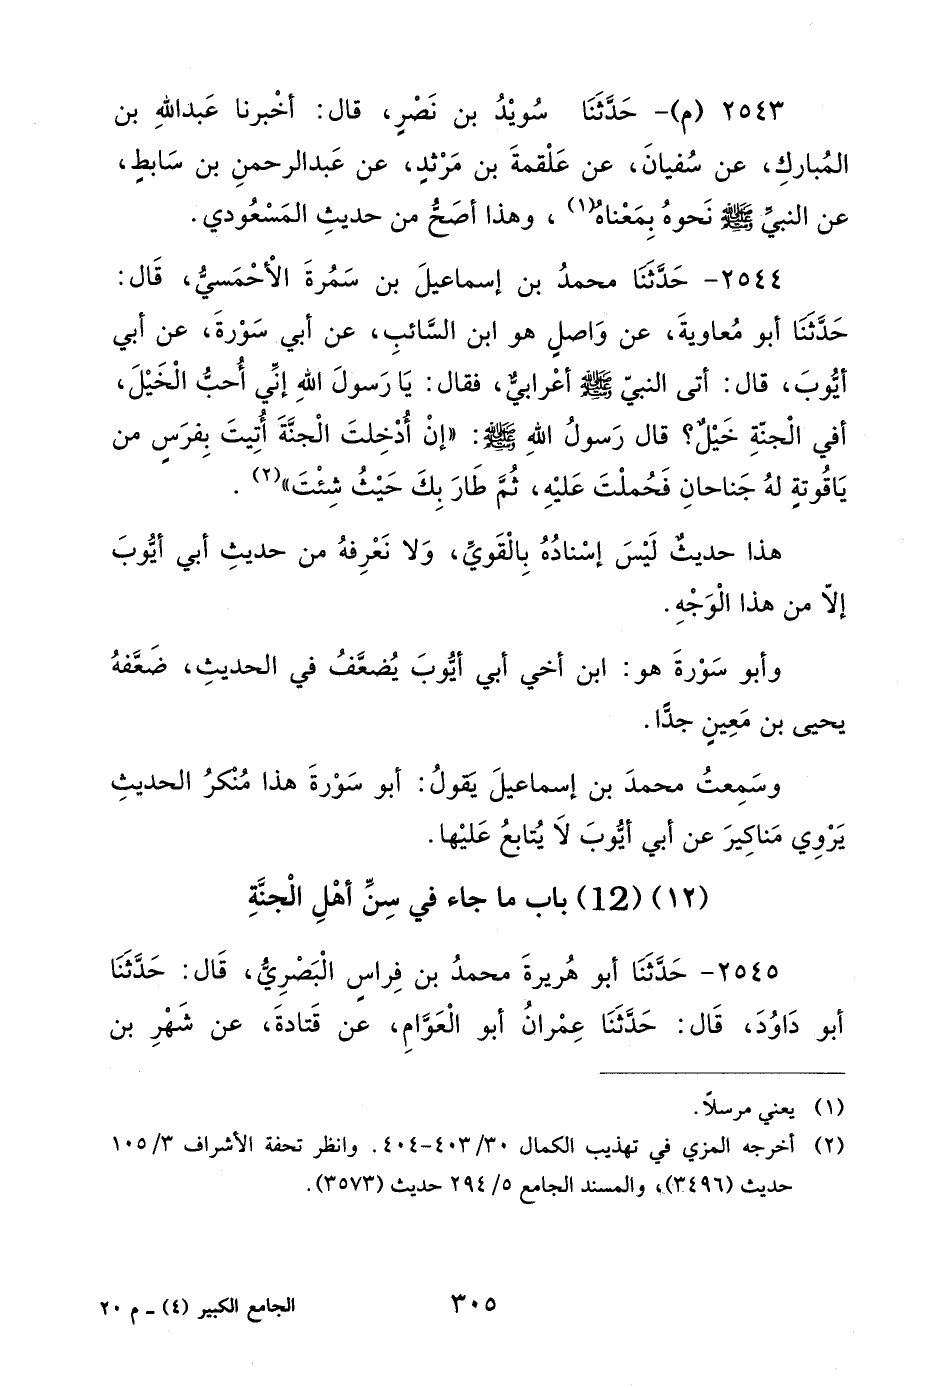 ٢٥٤٣ (م)- حَدَّثَنَا سُويْدُ بن نَصْرٍ، قال: أخْبرنا عَبداللهِ بن
المُباركِ، عن سُفيانَ، عن عَلْقمةَ بن مَرْثدٍ، عن عَبدالرحمنِ بن سَابطٍ،
عن النبيِّ ﷺ نَحوهُ بِمَعْناهُ(١) ، وهذا أصَحُّ من حديثِ المَسْعُودي.
٢٥٤٤- حَدَّثَنَا محمدُ بن إسماعيلَ بن سَمُرةَ الأحْمَسيُّ، قَال:
حَدَّثَنَا أبو مُعاويةَ، عن وَاصلٍ هو ابن السَّائبِ، عن أبي سَوْرةَ، عن أبي
أيُّوبَ، قال: أتى النبيّ ﷺ أعْرابيٌّ، فقال: يَا رَسولَ اللهِ إنِّي أُحبُّ الْخَيْلَ،
أفي الْجنّةِ خَيْلٌ؟ قال رَسولُ اللهِ ﷺ: «إنْ أُدْخِلتَ الْجنَّةَ أُتِيتَ بِفرَسٍ من
يَاقُوتةٍ لهُ جَناحانِ فَحُملْتَ عَليْهِ، ثُمَّ طَارَ بِكَ حَيْثُ شِئْتَ»(٢) .
هذا حديثٌ لَيْسَ إسْنادُهُ بِالْقَويِّ، وَلا نَعْرِفهُ من حديثِ أبي أيُّوبَ
إلاّ من هذا الْوَجْهِ.
وأبو سَوْرةَ هو: ابن أخي أبي أيُّوبَ يُضعَّفُ في الحديثِ، ضَعَّفهُ
يحيى بن مَعِينٍ جدًّا.
وسَمِعتُ محمدَ بن إسماعيلَ يَقولُ: أبو سَوْرةَ هذا مُنْكرُ الحديثِ
يَرْوِي مَناكِيرَ عن أبي أيُّوبَ لَا يُتابعُ عَليْها.
(١٢) (12) باب ما جاء في سِنِّ أهْلِ الْجنَّةِ
٢٥٤٥- حَدَّثَنَا أبو هُريرةَ محمدُ بن فِراسٍ الْبَصْرِيُّ، قَال: حَدَّثَنَا
أبو دَاوُدَ، قَال: حَدَّثَنَا عِمْرانُ أبو الْعَوَّامِ، عن قَتادةَ، عن شَهْرِ بن
(١) يعني مرسلاً.
(٢) أخرجه المزي في تهذيب الكمال ٣٠/ ٤٠٣-٤٠٤. وانظر تحفة الأشراف ٣/ ١٠٥
حديث (٣٤٩٦)، والمسند الجامع ٥/ ٢٩٤ حديث (٣٥٧٣).
٣٠٥
الجامع الكبير (٤) - م ٢٠